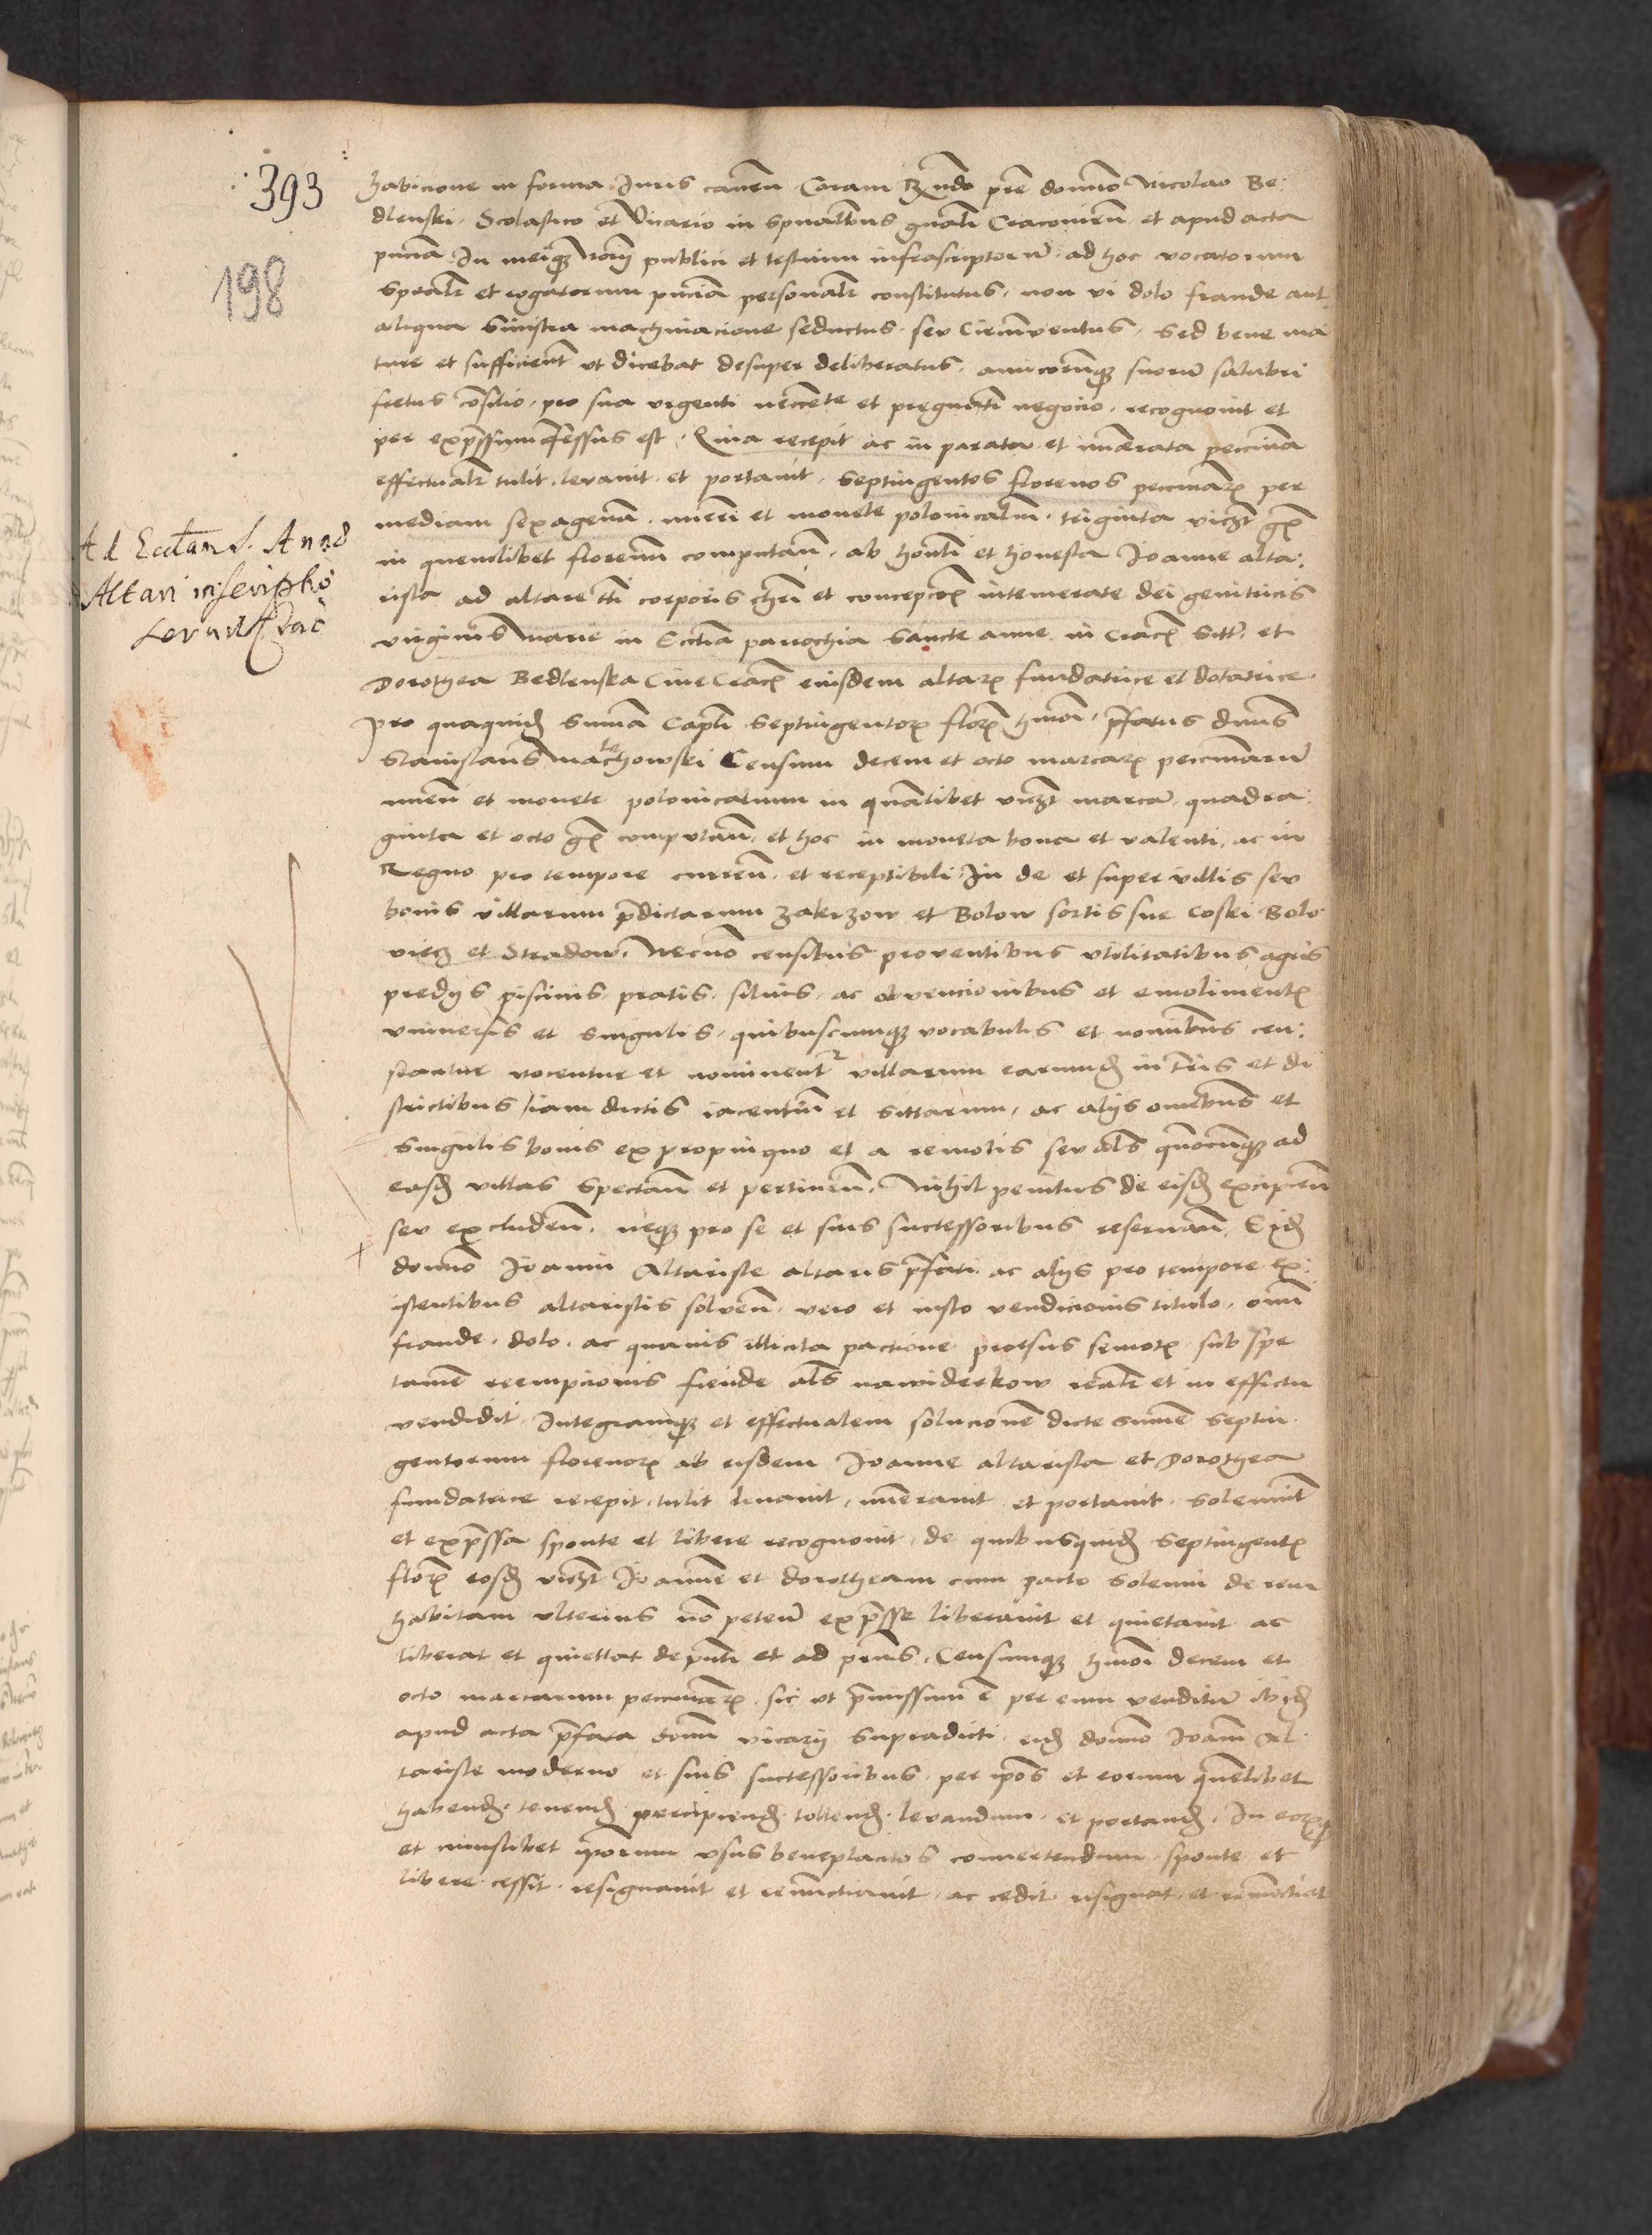 393
198
habicione in forma Juris caven Coram Rndo pre domno Nicolao Be:
dlenski Scolastico et Vicario in spualibus gnali Cracovien et apud acta
pncia In meiqz noty publici et testium infrascriptorum ad hoc vocatorum
spealr et rogatorum pncia personalr constitutus, non vi dolo fraude aut
aliqua sinistra machinacione seductus seu Circumventus, sed bene ma
ture et sufficient ut dicebat desuper deliberatus, amicorumqz suorum salubri
fretus consilio, pro sua urgenti necte et pregnanti negocio, recognovit et
per expressum confessus est, Quia recepit ac in parata et numerata pecunia
effectualr tulit levavit et portavit, septingentos florenos pecuniarz per
mediam sexagenam, numeri et monete polonicalium, triginta viczt gz
in quemlibet florenum computan, ab honti et honesta Joanne alta:
rista ad altare tti corporis chri et concepcoz intemerate dei genitricis
virginis Marie in Ecctia parrochia sancte anne in Cracz sitt et
Dorothea Bedlenska Cive Cracz eiusdem altarz fundatrice et dotatrice
Ad Ecctam S. Annæ
Altari inscripto
pro quaquidz summa Capti septingentorz florz hmoi, prefatus dnus
Stanislaus Mathowski Censum decem et octo marcarz pecuniarum
te
numeri et monete polonicalium in quamlibet viczt marcam, quadra:
ginta et octo gz computan, et hoc in moneta bona et valenti, ac in
Regno pro tempore curren, et receptibili, In de et super villis seu
bonis villarum predictarum Zakrzow et Bolow sortis sue Coski Bolo
viecz et Stradow, Necno censibus proventibus utilitatibus agris
predijs piscinis pratis, silvis, ac obvencionibus et emolimentz
universis et singulis, quibuscumqz vocabulis et nominibus cen:
seantur vocentur et nominentr villarum earumdz in Tris et di
strictibus iam dictis iacentium et sittarum, ac alijs omnibus et
singulis bonis ex propinquo et a remotis seu als quocumqz ad
easdz villas spectan et pertinen, Nihil penitus de eisdz excipien
seu excluden, neqz pro se et suis successoribus reservan, Eidz
domno Joanni Altariste altaris prefati ac alijs pro tempore Ex:
istentibus altaristis solven, vero et iusto vendicionis titulo, omni
fraude, dolo, ac quavis illicita pactione prorsus semotz, sub spe
tamen reempcionis fiende als nawiderkow realr et in effectu
vendidit, Integramqz et effectualem solucionem dicte summe septin
gentorum florenorz ab eisdem Joanne altarista et Dorothea
fundatrice recepit, tulit levavit, numeravit et portavit, solemnit
et expressa sponte et libere recognovit, de quibusquidz septingentz
florz eosdz viczt Joannem et dorotheam cum pacto solemni de rem
habitam ulterius no peten expresse liberavit et quietavit ac
liberat et quiettat de pnti et ad pmis, Censumqz hmoi decem et
octo marcarum pecuniarz, sic ut premissum e per eum venditum ibidz
apud acta prefata domni vicarij supradicti, eidz domno Joanni Al
tariste moderno et suis successoribus, per ipsos et eorum quemlibet
habendz, tenendz percipiendz, tollendz, levandum, et portandz, In eorzqz
et cuiuslibet ipsorum usus beneplacitos convertendum, sponte et
libere, cessit, resignavit et renunctiavit, ac cedit resignat, et renunctiat